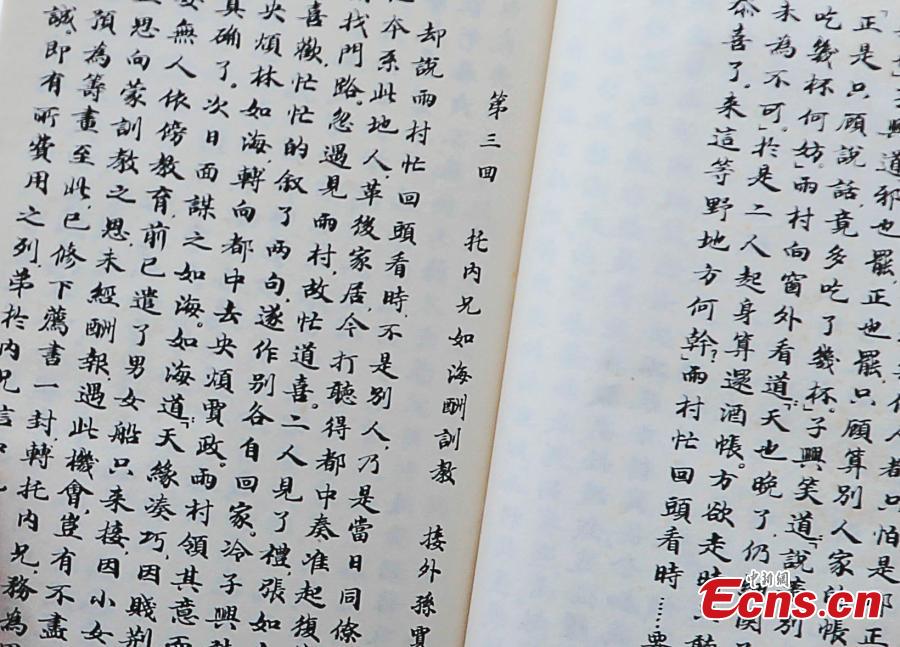 人都只怕是那正
興道邪也罷，正也罷，只顧算別人家的帳
「正是，只顧說話，竟多吃了幾杯。」子興笑道：「說着別
吃幾杯何妨。」雨村向窗外看道：「天也晚了，仍
未為不可。」於是二人起身，算還酒帳。方欲走時
恭喜了。來這等野地方何幹？」雨村忙回頭看時……要
第三回 托內兄如海酬訓教 接外孫賈
却說雨村忙回頭看時，不是別人，乃是當日同僚
本系此地人，革後家居，今打聽得都中奏准起復
找門路，忽遇見雨村，故忙道喜。二人見了禮，張如
喜歡，忙忙的叙了兩句，遂作別各自回家。冷子興
央煩林如海，轉向都中去央煩賈政。雨村領其意而
真确了。次日面謀之如海。如海道：「天緣湊巧，因賤荆
無人依傍教育，前已遣了男女船只來接，因小女
思向蒙訓教之恩未經酬報，遇此機會，豈有不盡
預為籌畫至此，已修下薦書一封，轉托內兄，務為
誠。即有所費用之列，弟於內兄信
中新網
Ecns.cn